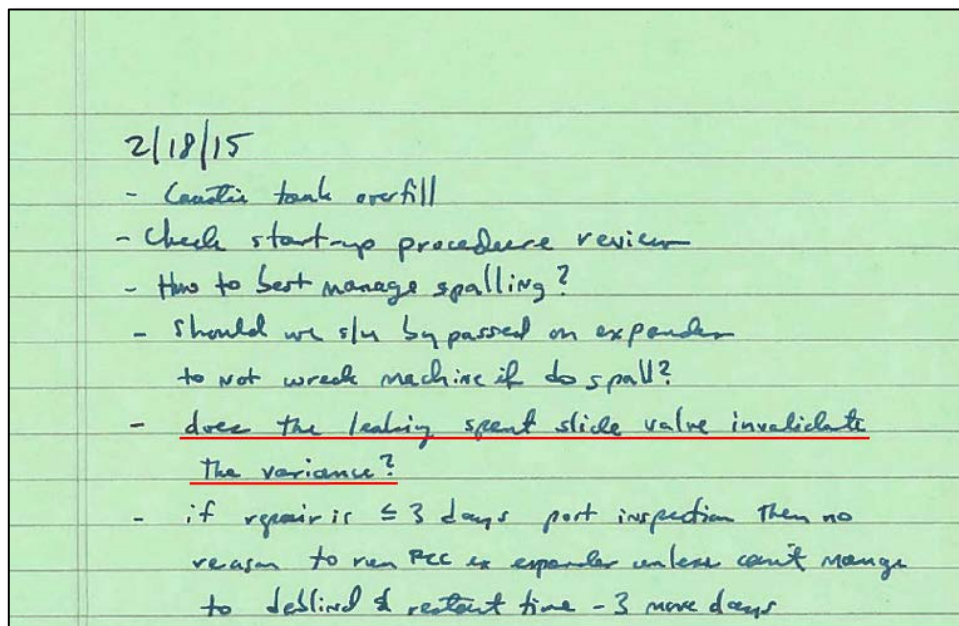 2/18/15
- Caustic tank overfill
- Check start-up procedure review
- How to best manage spalling?
- Should we s/u bypassed on expander
to not wreck machine if do spall?
- does the leaking spent slide valve invalidate
the variance?
- if repair is ≤ 3 days post inspection then no
reason to run FCC ex expander unless can't mange
to deblind & restart time - 3 more days